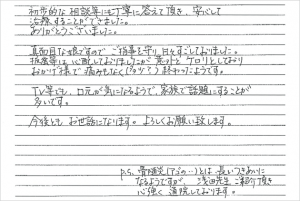 初歩的な相談等にも丁寧に答えて頂き、安心して
治療することができました。
ありがとうございました。
真面目な娘ですので ご指導を守り、日々すごしておりました。
抜歯等は心配しておりましたが 意外と ケロリとしており
おかげ様で 痛みもなく 終わったようです。
TV等でも、口元が気になるようで、家族で話題にすることが
多いです。
今後とも お世話になります。よろしくお願い致します。
P.S. 骨髄炎(アゴの…)とは、長いつきあいに
なるようですが、浅田先生ご紹介頂き
心強く 通院しております。